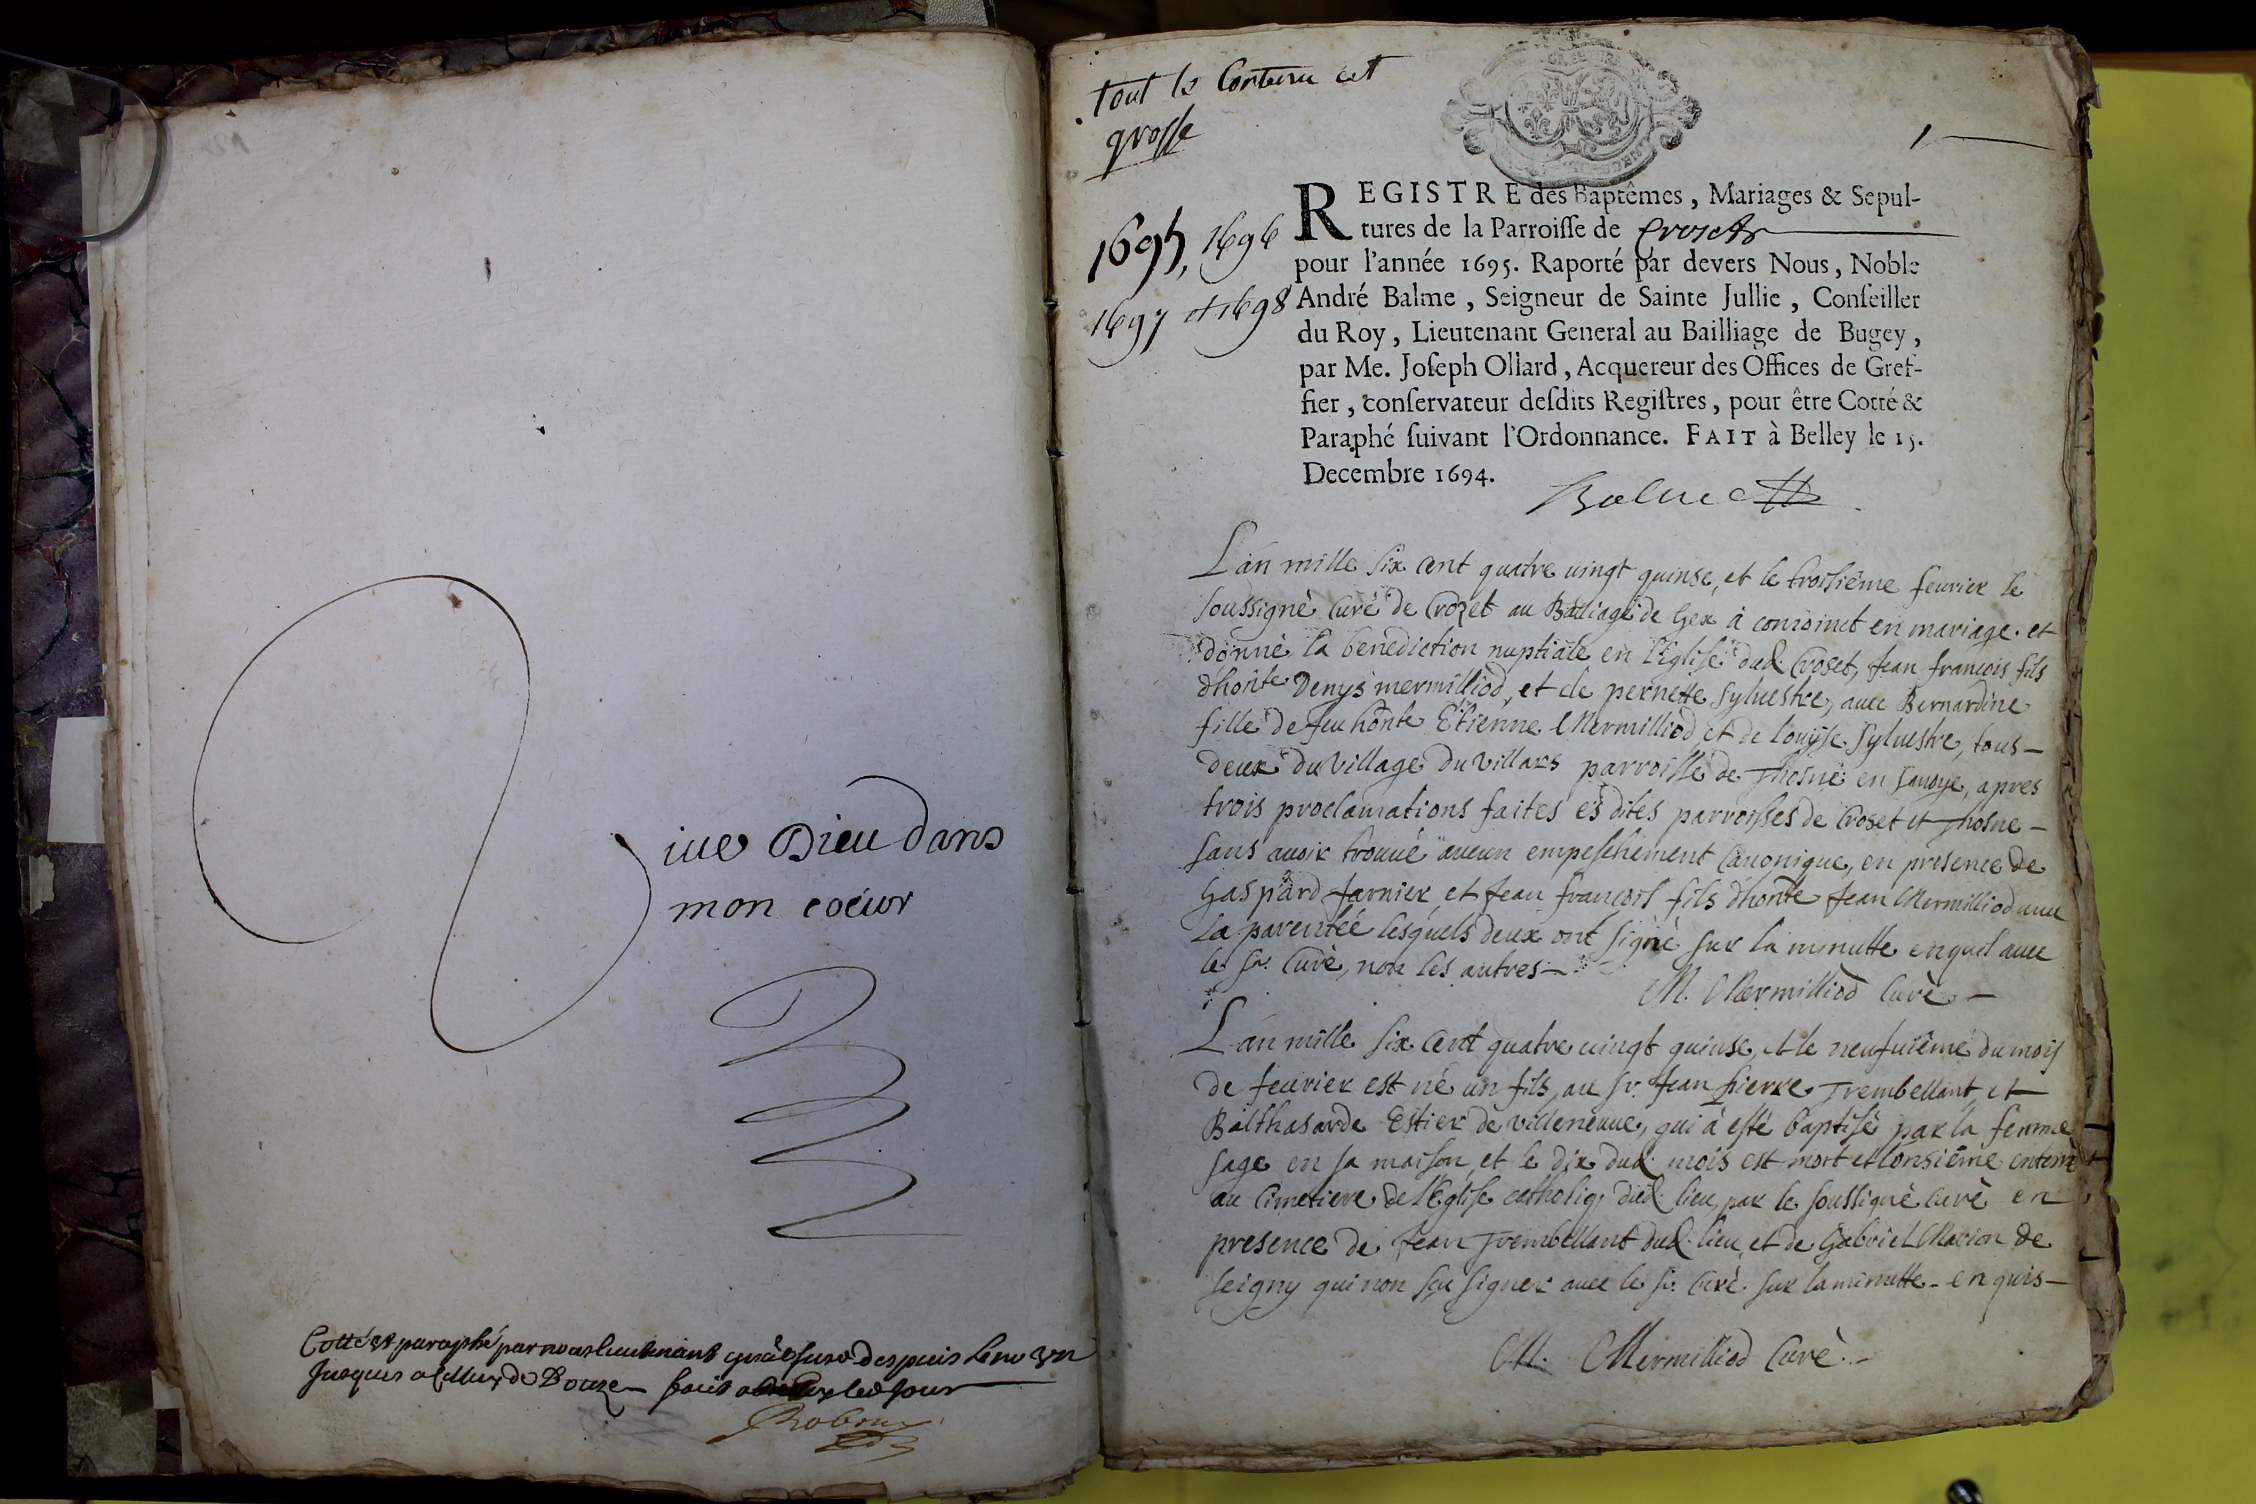 Vive Dieu dans
mon coeur
Cotté et paraphé par nous lieutenant despuis le no un
jusques a de Douze fait a led jour
tout le Contenu est
grosse
1
1695, 1696
1697 et 1698
REGISTRE des Baptêmes, Mariages & Sepul-
tures de la Parroisse de Crozet
pour l'année 1695. Raporté par devers Nous, Noble
André Balme, Seigneur de Sainte Jullie, Conseiller
du Roy, Lieutenant General au Bailliage de Bugey,
par Me. Joseph Ollard, Acquereur des Offices de Gref-
fier, conservateur desdits Registres, pour être Cotté &
Paraphé suivant l'Ordonnance. FAIT à Belley le 15.
Decembre 1694.
Balme
L'an mille six cent quatre vingt quinse, et le troisième feurier le
soussignè Curè de Crozet au Bailiage de Gex à conioinct en mariage et
donnè la benediction nuptiale en l'Eglise dud. Croset, Jean françois fils
d'honte Denys mermilliod, et de pernette Syluestre, auec Bernardine
fille de feu honte Etienne Mermilliod et de Louyse Syluestre, tous-
deux du village du villars parroisse de Thosne en Sauoye, apres
trois proclamations faites es dites parroisses de Croset et Thosne-
sans auoir trouué aucun empeschement Canonique, en presence de
Gaspard farnier et Jean françois fils d'honte Jean Mermilliod auec
la parentée lesquels deux ont signè sur la minutte enquis auec
le sr. Curè, non les autres-
M. Mermilliod Curè-
L'an mille six Cent quatre uingt quinse, et le neufuième du mois
de feurier est né un fils, au sr. Jean pierre Trembellant, et
Balthasarde Estier de villeneuue, qui à esté baptisé par la femme
sage en sa maison, et le dix dud. mois est mort et l'onsième enterré
au Cimetiere de l'Eglise catholiq. dud. lieu, par le soussignè Curè en
presence de Jean Trembellant dud. lieu, et de Gabriel Marion de
seigny qui non sçu signer auec le sr. Curè. sur la minutte- enquis-
M. Mermilliod Curè.-